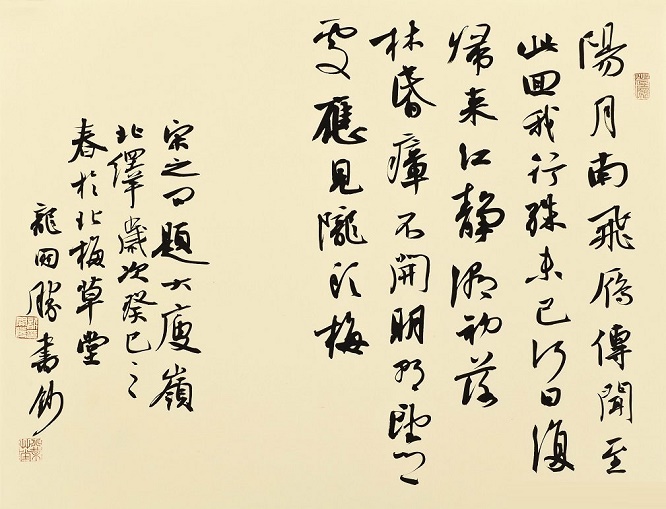 陽月南飛雁傳聞至
此回我行殊未已何日復
歸来江静潮初落
林昏瘴不開明朝望郷
處應見隴頭梅
宋之问題大庾嶺
北驛歲次癸巳之
春於北梅草堂
龍國勝書鈔